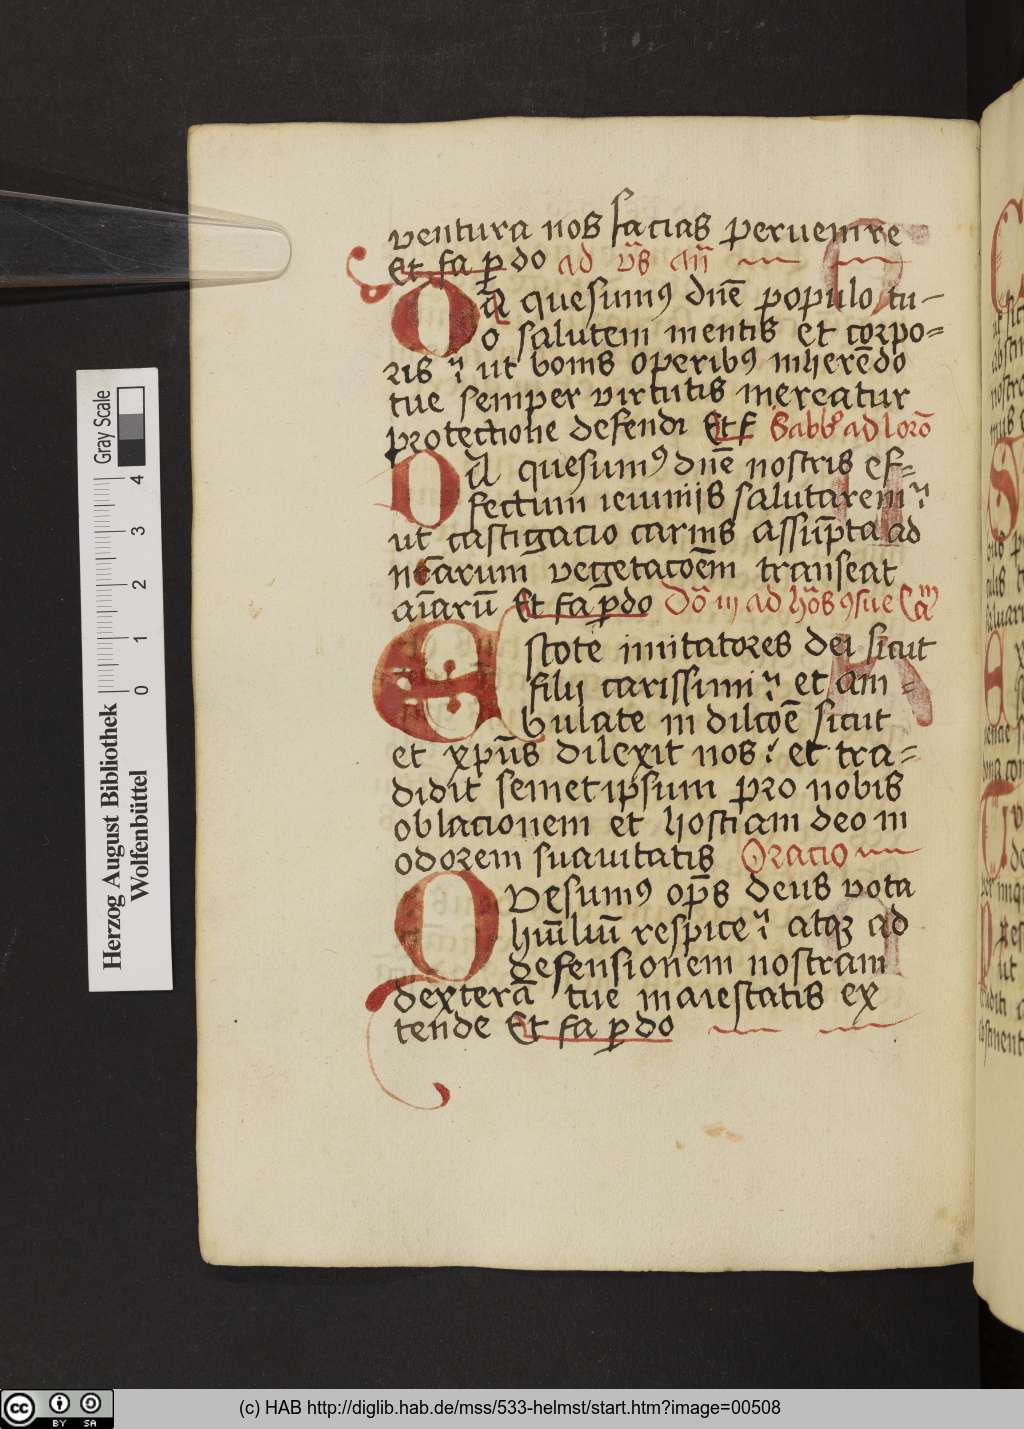 ventura nos facias peruenire
Et fa p do ad vs̄ añ
Da quesumꝰ dn̄e populo tu-
o salutem mentis et corpo=
ris ? ut bonis operibꝰ inherēdo
tue semper virtutis mereatur
protectione defendi Et F Sabbo ad loro᷒
Da quesumꝰ dn̄e nostris ef=
fectum ieiunijs salutarem ?
ut castigacio carnis assūpta ad
nr̄arum vegetacōem transeat
aīarū Et fa p̄do Dō iij ad hōs ꝯsue Cam
Estote imitatores dei sicut
filij carissimi ? et am =
bulate in dilcōe sicut
et xp̄us dilexit nos ? et tra=
didit semetipsum pro nobis
oblacionem et hostiam deo in
odorem suauitatis Oracio
Quesumꝰ op̄s deus vota
hūiliū respice ? atqꝫ ad
defensionem nostram
dexterā tue maiestatis ex
tende Et fa p do
Herzog August Bibliothek
Wolfenbüttel
Gray Scale
0 1 2 3 4
cc BY SA
(c) HAB http://diglib.hab.de/mss/533-helmst/start.htm?image=00508